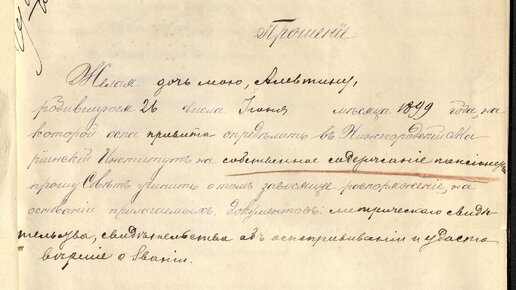 Прошеніе
Желая дочь мою, Алевтину,
родившуюся 26 числа Іюня мѣсяца 1899 года, на
которой оспа привита опредѣлить въ Нижегородскій Ма-
ріинскій Институтъ на собственное содержаніе пансіонер
прошу Совѣтъ учинить о томъ зависящее распоряженіе, на
основаніи прилагаемыхъ документовъ: метрическаго свидѣ-
тельства, свидѣтельства объ оспопрививаніи и удосто
вѣреніе о званіи.